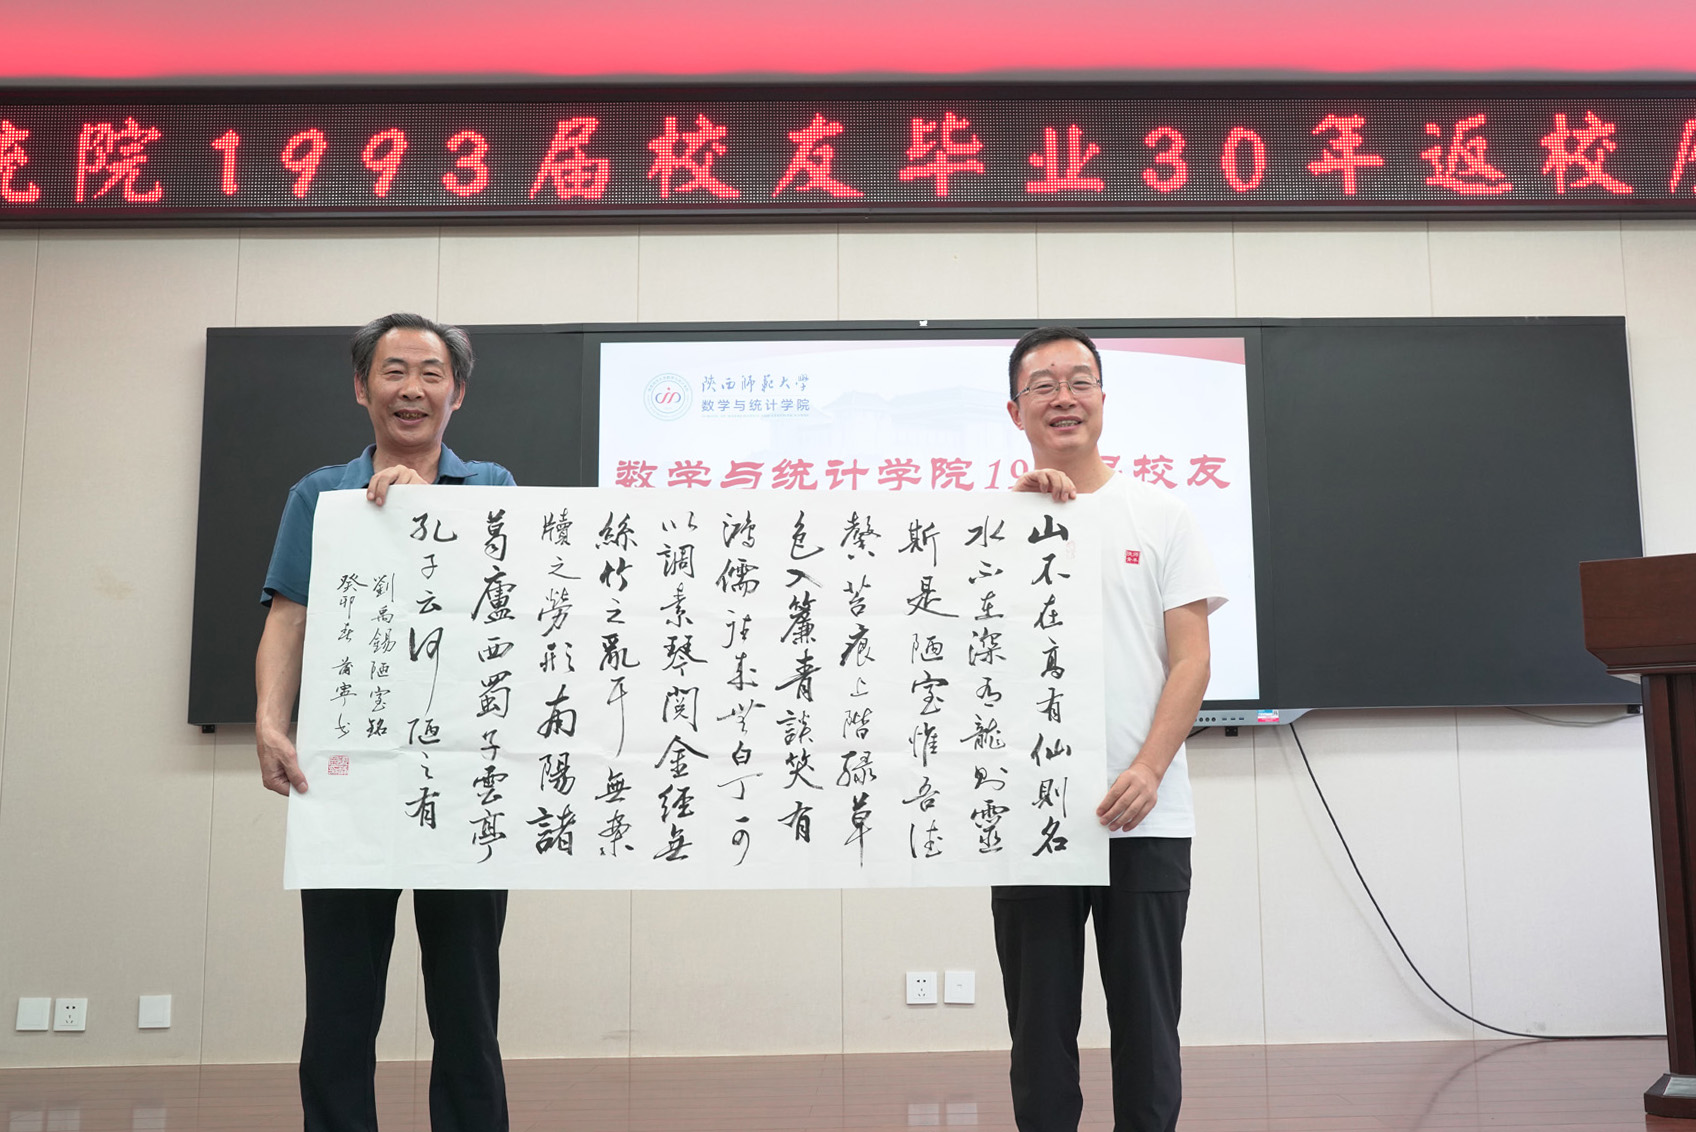 院1993届校友毕业30年返校
陕西师范大学
数学与统计学院
数学与统计学院19 校友
山不在高有仙則名
水不在深有龍則靈
斯是陋室惟吾德
馨苔痕上階緑草
色入簾青談笑有
鴻儒往来無白丁可
以調素琴閲金經無
絲竹之亂耳無案
牘之勞形南陽諸
葛廬西蜀子雲亭
孔子云何陋之有
劉禹錫陋室銘
癸卯春